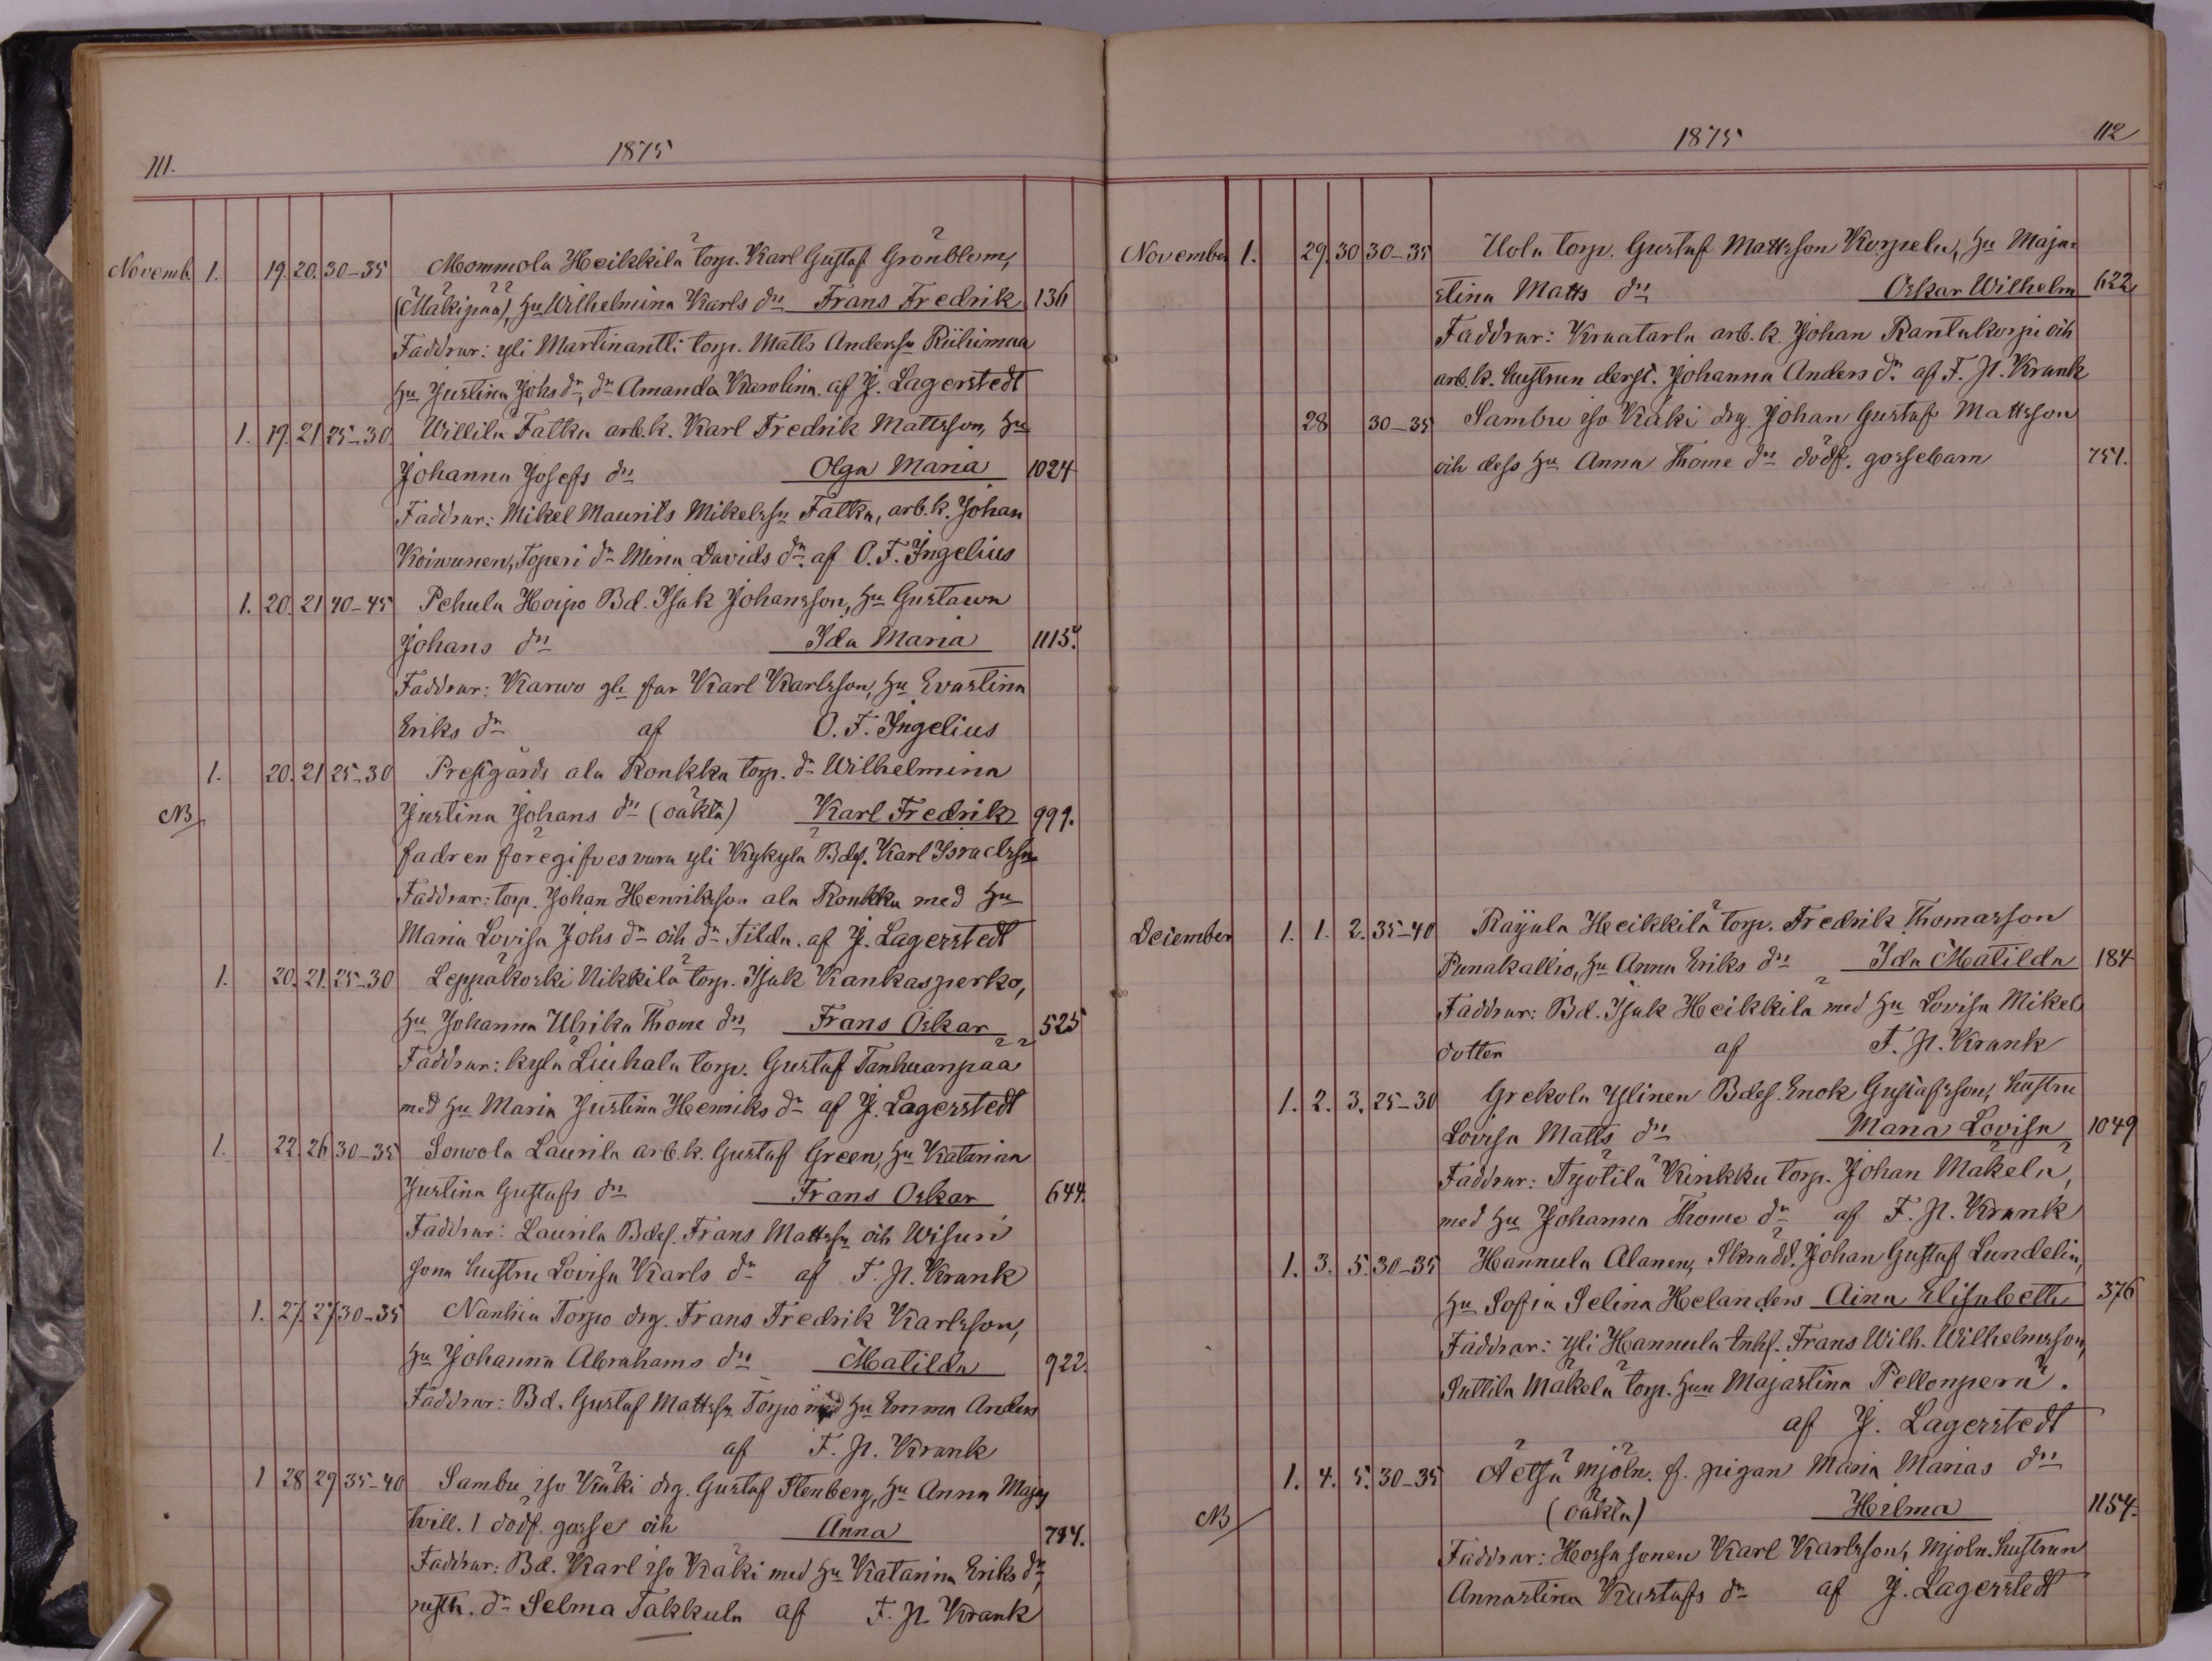 111.
1875
Novemb. 1. 19. 20. 30-35 Mommola Heikkilä torp. Karl Gustaf Grönblom,
(Mäkipää), Hu Wilhelmina Karls dr Frans Fredrik 136
Faddrar: yli Martinantti torp. Matts Anderss. Riihimaa
Hu Justina Johs dr, dr Amanda Karolina. af J. Lagerstedt
1. 19. 21 25-30 Willila Fatku arb.k. Karl Fredrik Mattsson, Hu
Johanna Josefs dr Olga Maria 1024
Faddrar: Mikel Maurits Mikelss. Fatku, arb.k. Johan
Koiwunen, Toperi dr Mina Davids dr. af O. F. Ingelius
1. 20. 21 40-45 Pehula Hoipo Bd. Isak Johansson, Hu Gustawa
Johans dr Ida Maria 1113.
Faddrar: Karwo gl. far Karl Karlsson, Hu Evastina
Eriks dr af O. F. Ingelius
1. 20. 21 25-30 Prestgårds ala Ronkka torp. dr Wilhelmina
NB Justina Johans dr (oäkta) Karl Fredrik 991.
fadren föregifves vara yli Kykylä Bdes. Karl Israelss.
Faddrar: torp. Johan Henriksson ala Ronkka med Hu
Maria Lovisa Johs dr och dr Tilda. af J. Lagerstedt
1. 20. 21. 25-30 Leppäkoski Nikkilä torp. Isak Kankasperko,
Hu Johanna Ulrika Thome dr Frans Oskar 525
Faddrar: kylä Liuhala torp. Gustaf Tanhuanpää
med Hu Maria Justina Henriks dr af J. Lagerstedt
1. 22. 26 30-35 Sonwola Laurila arb.k. Gustaf Green, Hu Katarina
Justina Gustafs dr Frans Oskar 644.
Faddrar: Laurila Bdes. Frans Mattss. och Wisuri
sona hustru Lovisa Karls dr af F. N. Krank
1. 27. 27 30-35 Nanhia Torpo drg. Frans Fredrik Karlsson,
Hu Johanna Abrahams dr Matilda 922.
Faddrar: Bd. Gustaf Mattss. Torpo med Hu Emma Anders
af F. N. Krank
1 28 29 35-40 Sambu iso Käki drg. Gustaf Stenberg, Hu Anna Maja
tvill. 1 dödf. gosse och Anna 784.
Faddrar: Bd. Karl iso Käki med Hu Katarina Eriks dr,
rusth. dr Selma Takkula af F. N. Krank
1875
112
November 1. 29. 30 30-35 Uola torp. Gustaf Mattsson Korpela, Hu Maja-
stina Matts dr Oskar Wilhelm 622
Faddrar: Kraatarla arb.k. Johan Rantakorpi och
arb.k. hustrun derst. Johanna Anders dr. af F. N. Krank
28 30-35 Sambu iso Käki drg. Johan Gustaf Mattsson
och dess Hu Anna Thome dr dödf. gossebarn 751.
December 1. 1. 2. 35-40 Raijala Heikkilä torp. Fredrik Thomasson
Punakallio, Hu Anna Eriks dr Ida Matilda 184
Faddrar: Bd. Isak Heikkilä med Hu Lovisa Mikels
dotter af F. N. Krank
1. 2. 3. 25-30 Grekola Ylinen Bdes. Enok Gustafsson, hustru
Lovisa Matts dr Maria Lovisa 1049
Faddrar: Työtilä Kinkku torp. Johan Mäkelä,
med Hu Johanna Thome dr af F. N. Krank
1. 3. 5. 30-35 Hannula Alanen, Skrädd. Johan Gustaf Lundelin,
Hu Sofia Selina Helanders Aina Elisabeth 376
Faddrar: yli Hannula Inhs. Frans Wilh. Wilhelmsson,
Suttila Mäkelä torp. Hun Majastina Pellonperä.
af J. Lagerstedt
1. 4. 5. 30-35 Äetsä mjöln. f. pigan Maria Marias dr
NB (oäkta) Hilma 1154.
Faddrar: Hossa sonen Karl Karlsson, mjöln. hustrun
Annastina Kustafs dr af J. Lagerstedt